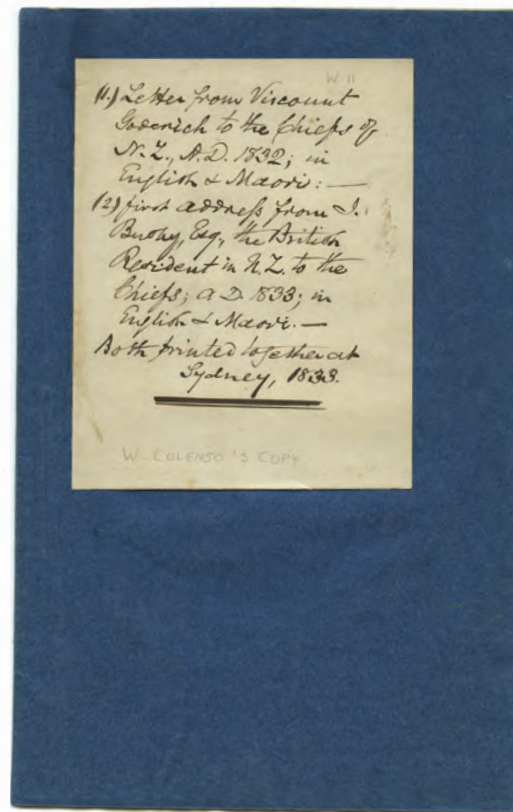 W 11
(1.) Letter from Viscount
Goderich to the Chiefs of
N.Z., A.D. 1832; in
English & Maori: —
(2) first address from J.
Busby, Esq., the British
Resident in N.Z. to the
Chiefs; A D 1833; in
English & Maori. —
Both printed together at
Sydney, 1833.
W. COLENSO'S COPY